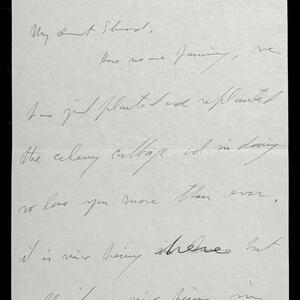 My dearest Edward,
Here we are farming, we
have just planted and replanted
the celery cabbage and in doing
so love you more than ever.
it is nice being here but
nice being in